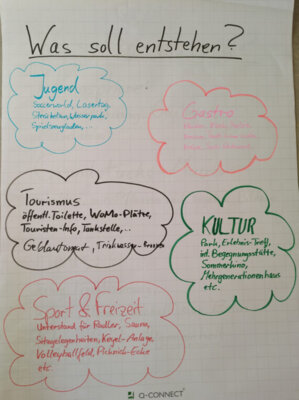 Was soll entstehen?
Jugend
Soccerworld, Lasertag,
Streichelzoo, Wasserpark,
Spielzeugladen,...
Gastro
Tourismus
öffentl. Toilette, WoMo-Plätze,
Touristen-Info, Tankstelle,..
Geldautomat, Trinkwasser-
KULTUR
Park, Erlebnis-Treff,
int. Begegnungsstätte,
Sommerkino,
Mehrgenerationenhaus
etc.
Sport & Freizeit
Unterstand für Radler, Sauna,
Sitzgelegenheiten, Kegel-Anlage,
Volleyballfeld, Picknick-Ecke
etc.
Q-CONNECT